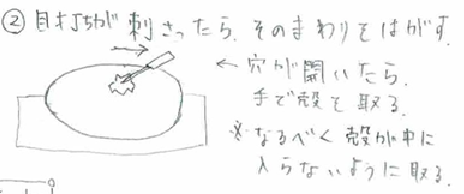 ② 目打ちが刺さったら、そのまわりをはがす。
← 穴が開いたら、
手で殻を取る。
※なるべく殻が中に
入らないように取る。